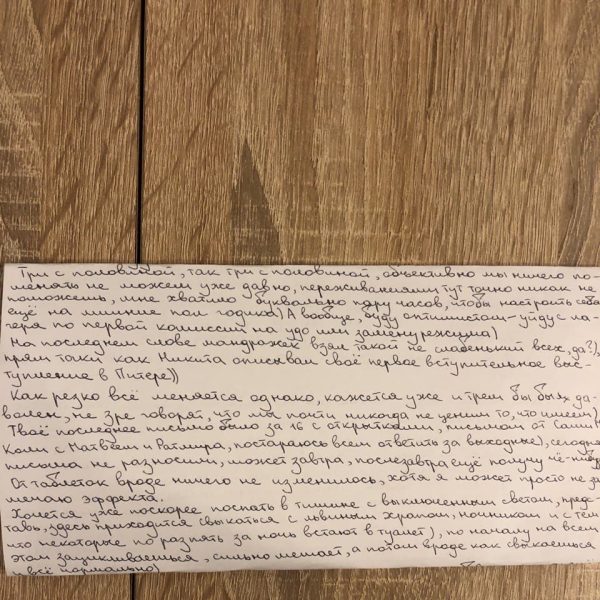 Три с половиной, так три с половиной, объективно мы ничего по
менять не можем уже давно, переживаниями тут точно никак не
поможешь, мне хватило буквально пару часов, чтобы настроить себя
ещё на минимум пол годика) А вообще, буду оптимистом - уйду с ла-
геря по первой комиссии на удо или замену режима)
На последнем слове мандражек взял такой не слабенький всех, да?),
прям таки как Никита описывал своё первое вступительное выс-
тупление в Питере))
Как резко всё меняется однако, кажется уже и трем бы был до-
волен, не зря говорят, что мы почти никогда не ценим то, что имеем)
Твоё последнее письмо было за 16 с открытками, письмом от Саши
Коли с Матвеем и Ратмира, постараюсь всем ответить за выходные), сегодня
письма не разносили, может завтра, послезавтра ещё получу чё-нибудь
От таблеток вроде ничего не изменилось, хотя я может просто не за
мечаю эффекта.
Хочется уже поскорее поспать в тишине с выключенным светом, пред-
тавь, здесь приходится свыкаться с львиным храпом, ночником и с тем
что некоторые по раз пять за ночь встают в туалет), по началу на всем
этом зацикливаешься, сильно мешает, а потом вроде как свыкаешься
и всё нормально)